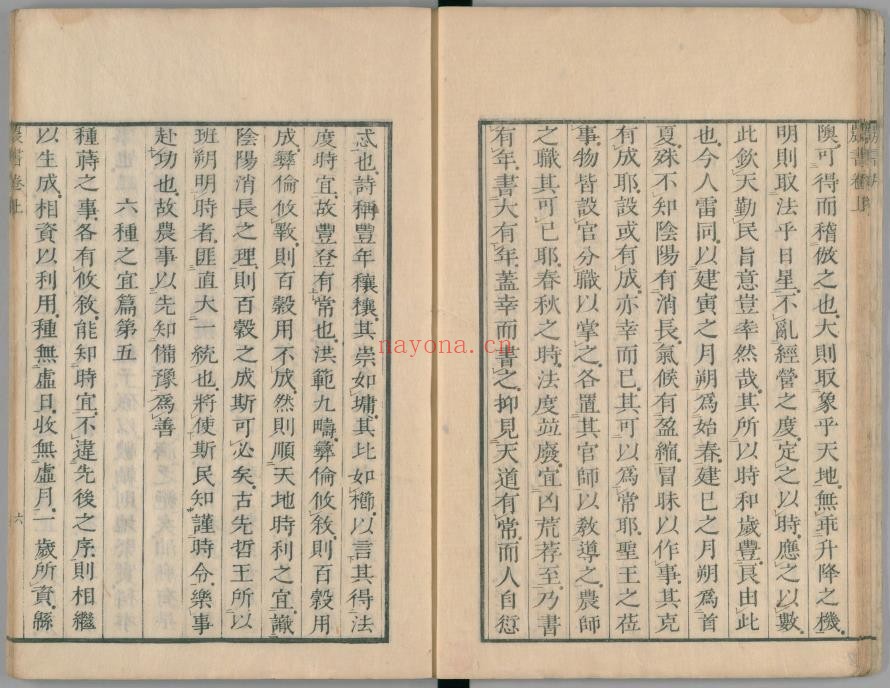 隩可得而稽倣之也大則取象乎天地無乖升降之機
明則取法乎日星不亂經營之度定之以時應之以數
此欽天勤民旨意豈率然哉其所以時和歲豐良由此
也今人雷同以建寅之月朔爲始春建巳之月朔爲首
夏殊不知陰陽有消長氣候有盈縮冒昧以作事其克
有成耶設或有成亦幸而已其可以爲常耶聖王之莅
事物皆設官分職以掌之各置其官師以敎導之農師
之職其可已耶春秋之時法度並廢宜凶荒荐至乃書
有年書大有年蓋幸而書之抑見天道有常而人自愆
忒也詩稱豐年穰穰其崇如墉其比如櫛以言其得法
度時宜故豐登有常也洪範九疇彝倫攸敘則百穀用
成彝倫攸斁則百穀用不成然則順天地時利之宜識
陰陽消長之理則百穀之成斯可必矣古先哲王所以
班朔明時者匪直大一統也將使斯民知謹時令樂事
赴功也故農事以先知備豫爲善
六種之宜篇第五
種蒔之事各有攸敘能知時宜不違先後之序則相繼
以生成相資以利用種無虛日收無虛月一歲所資緜
農書卷上
六
nayona.cn